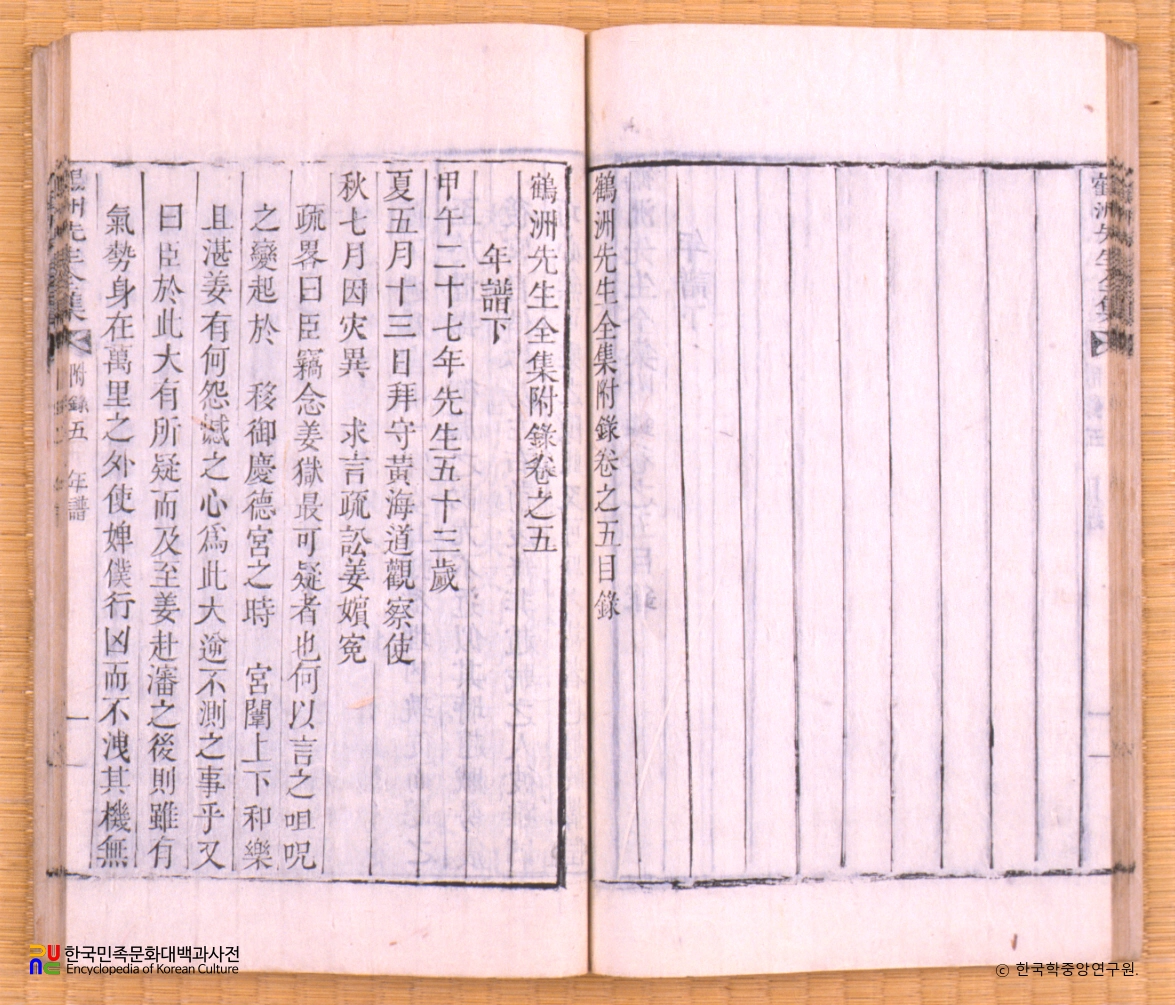 鶴洲先生全集
鶴洲先生全集附錄卷之五目錄
鶴洲先生全集附錄卷之五
年譜下
甲午二十七年先生五十三歲
夏五月十三日拜守黃海道觀察使
秋七月因灾異 求言疏訟姜嬪寃
疏畧曰臣竊念姜獄最可疑者也何以言之咀呪
之變起於 移御慶德宮之時 宮闈上下和樂
且湛姜有何怨憾之心爲此大逆不測之事乎又
曰臣於此大有所疑而及至姜赴瀋之後則雖有
氣勢身在萬里之外使婢僕行凶而不洩其機無
鶴洲先生全集 附錄五 年譜 一
한국민족문화대백과사전
Encyclopedia of Korean Culture
© 한국학중앙연구원.